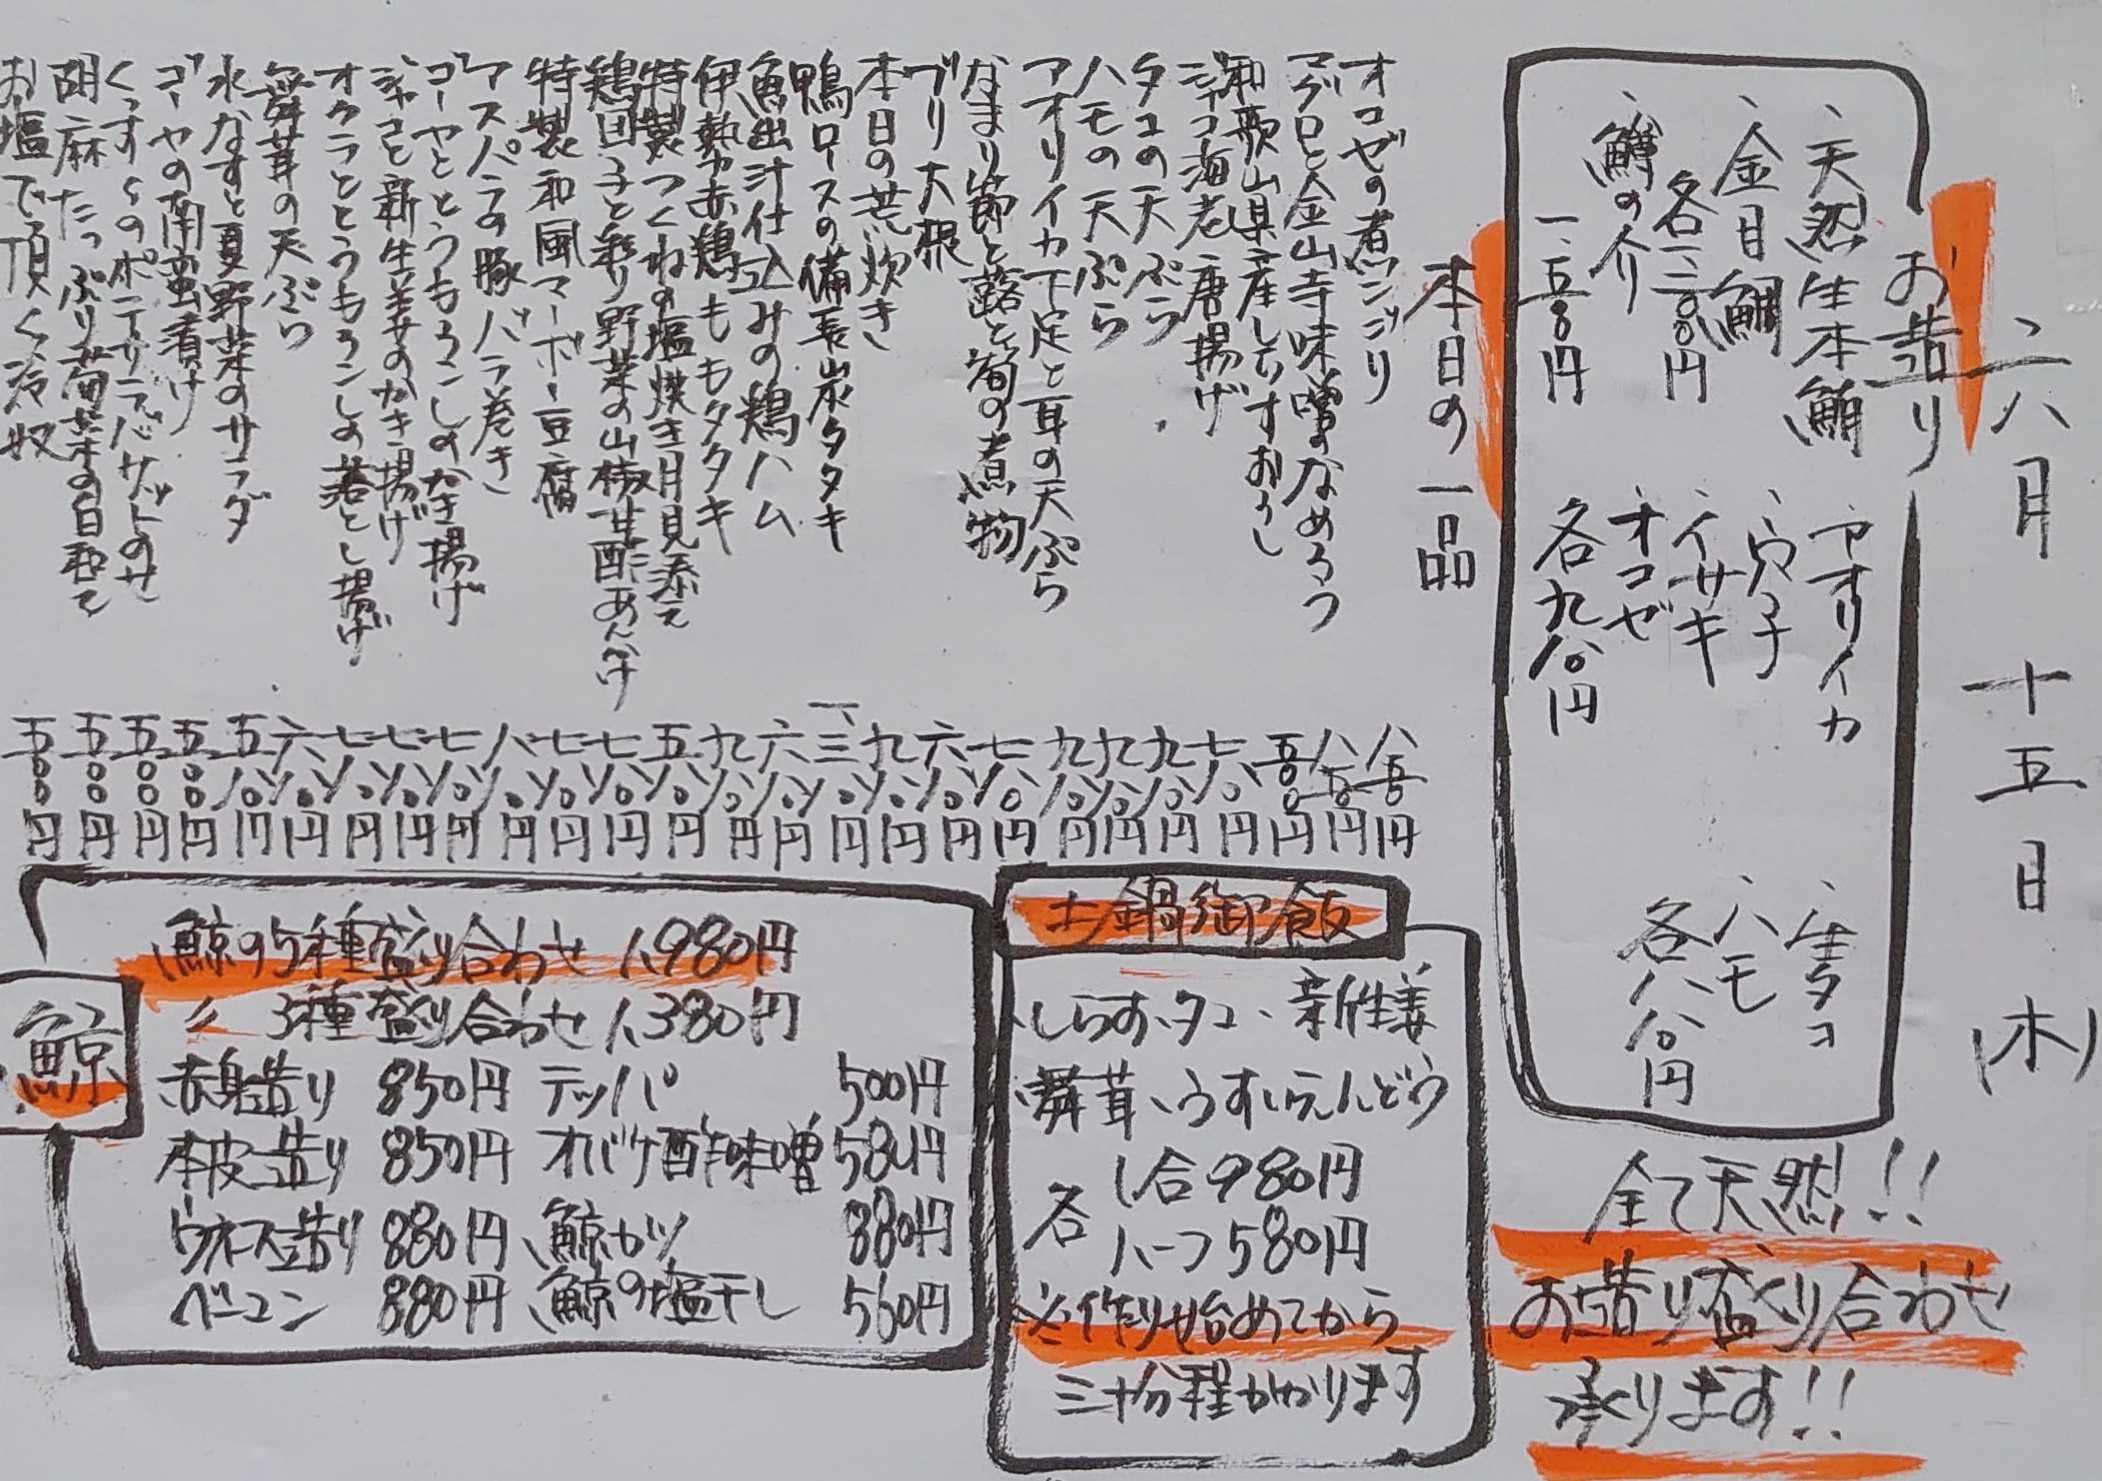 六月 十五日 (木)
お造り
、天然生本鮪
、金目鯛
各一、二〇〇円
、鱒の介
一、五〇〇円
、アオリイカ
、穴子
、イサキ
、オコゼ
各九八〇円
、生タコ
、ハモ
各八八〇円
全て天然!!
お造り盛り合わせ
承ります!!
本日の一品
オコゼの煮こごり 八五〇円
マグロと金山寺味噌のなめろう 八五〇円
和歌山県産しらすおろし 五〇〇円
シャコ海老唐揚げ 七八〇円
タコの天ぷら 九八〇円
ハモの天ぷら 九八〇円
アオリイカ下足と耳の天ぷら 九八〇円
なまり節と蕗と筍の煮物 七八〇円
ブリ大根 六八〇円
本日の荒炊き 九八〇円
鴨ロースの備長炭タタキ 一、三八〇円
魚出汁仕込みの鶏ハム 六八〇円
伊勢赤鶏ももタタキ 九八〇円
特製つくねの塩焼き月見添え 五八〇円
鶏団子と彩り野菜の山椒甘酢あんかけ 七八〇円
特製和風マーボー豆腐 七八〇円
アスパラの豚バラ巻き 八八〇円
ゴーヤととうもろこしのかき揚げ 七八〇円
シャコと新生姜のかき揚げ 七八〇円
オクラととうもろこしの落とし揚げ 七八〇円
舞茸の天ぷら 六八〇円
水なすと夏野菜のサラダ 五八〇円
ゴーヤの南蛮漬け 五〇〇円
くっすんのポテサラバサットのせ 五〇〇円
胡麻たっぷり菊菜の白和え 五〇〇円
お塩で頂く冷奴 五〇〇円
土鍋御飯
、しらす、タコ、新生姜
舞茸、うすいえんどう
各 1合980円
ハーフ580円
※作り始めてから
三十分程かかります
鯨
、鯨の5種盛り合わせ 1,980円
〃 3種盛り合わせ 1,380円
赤身造り 850円 テッパ 500円
本皮造り 850円 オバケ酢味噌 580円
ウネス造り 880円 、鯨カツ 880円
ベーコン 880円 、鯨の塩干し 560円